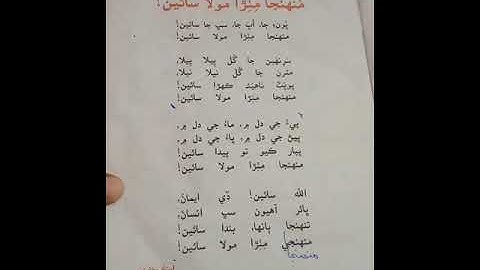 منهنجا مِٺڙا مولا سائين!
ڀونءِ جا، اڀ جا، سڀ جا سائين!
منهنجا مِٺڙا مولا سائين!
سرنهين جا گُل پيلا پيلا،
مٽرن جا گُل نيلا نيلا،
پوپٽ ناهيند ڪهڙا سائين!
منهنجا مِٺڙا مولا سائين!
پيءُ جي دل ۾، ماءُ جي دل ۾،
ڀيڻ جي دل ۾، ڀاءُ جي دل ۾،
پيار ڪيو تو پيدا سائين!
منهنجا مِٺڙا مولا سائين!
الله سائين! ڏي ايمان،
ڀائر آهيون سڀ انسان،
تنهنجا ٻانها، بندا سائين!
منهنجي مِٺڙا مولا سائين!
منهنجا